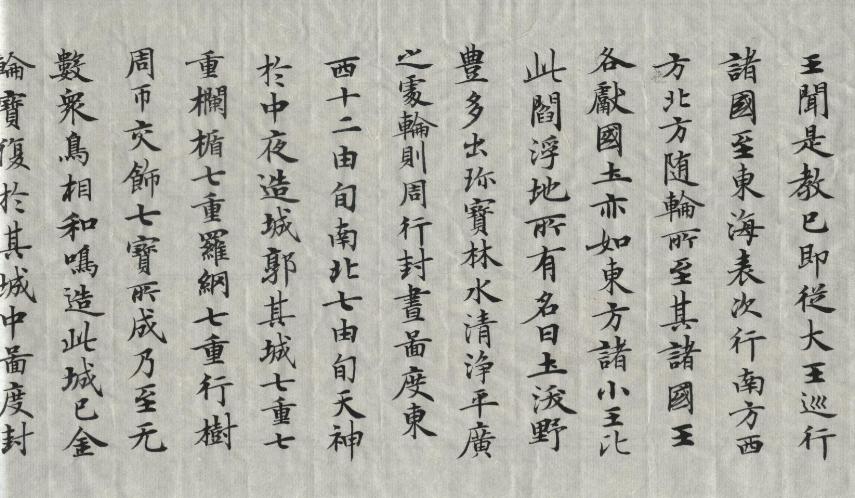 王聞是教已即從大王巡行
諸國至東海表次行南方西
方北方随輪所至其諸國王
各獻國土亦如東方諸小王比
此閻浮地所有名曰土沃野
豊多出珎寶林水清浄平廣
之處輪則周行封畫啚度東
西十二由旬南北七由旬天神
於中夜造城郭其城七重七
重欄楯七重羅網七重行樹
周帀交飾七寶所成乃至无
數衆鳥相和鳴造此城已金
輪寶復於其城中啚度封